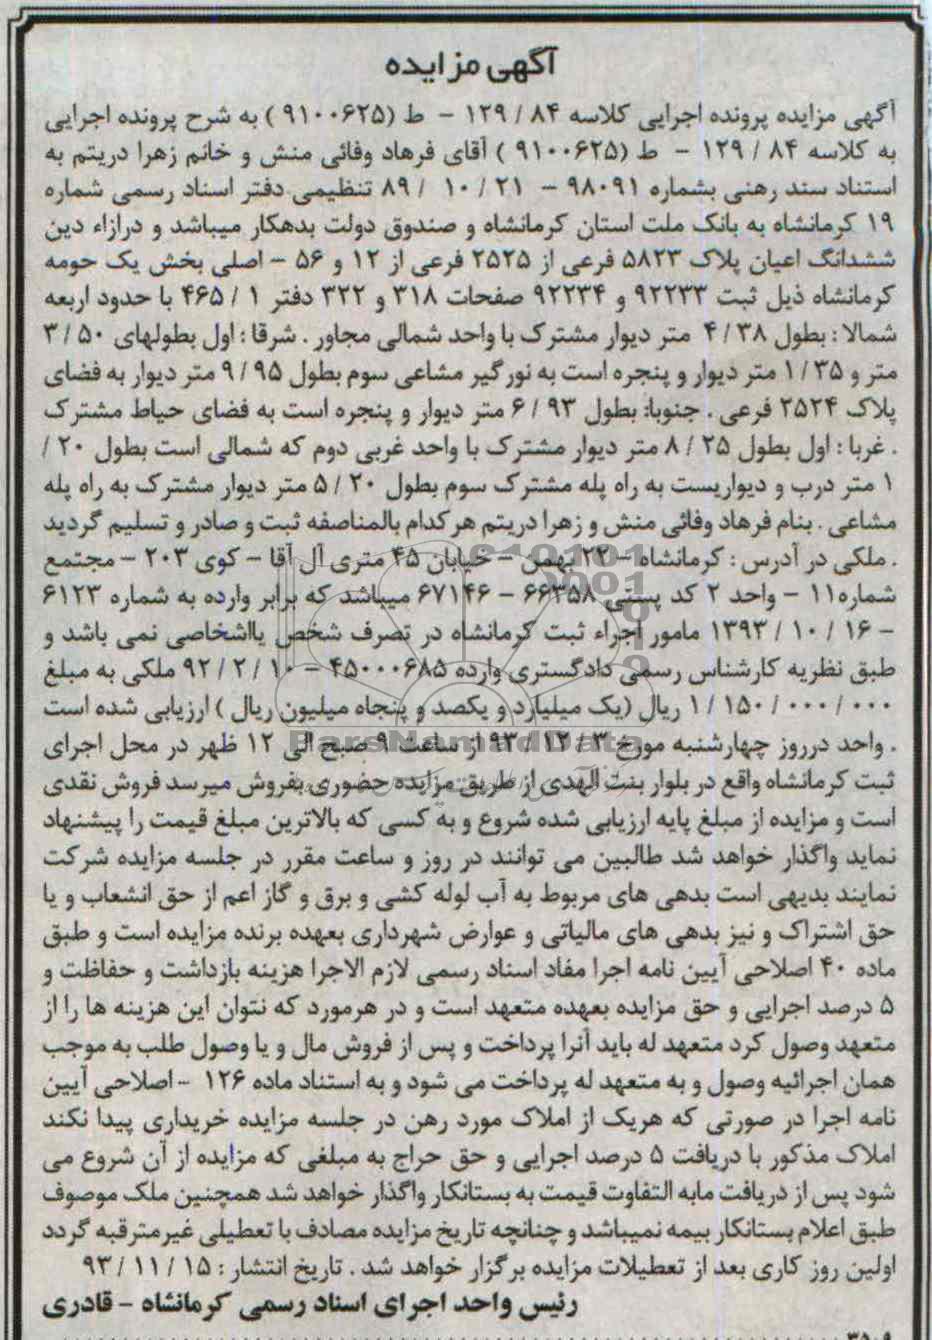 آگهی مزایده
آگهی مزایده پرونده اجرایی کلاسه ۸۴ / ۱۲۹ - ط (۹۱۰۰۶۲۵ ) به شرح پرونده اجرایی
به کلاسه ۸۴ / ۱۲۹ - ط (۹۱۰۰۶۲۵ ) آقای فرهاد وفائی منش و خانم زهرا دریتم به
استناد سند رهنی بشماره ۹۸۰۹۱ - ۲۱ / ۱۰ / ۸۹ تنظیمی دفتر اسناد رسمی شماره
۱۹ کرمانشاه به بانک ملت استان کرمانشاه و صندوق دولت بدهکار میباشد و درازاء دین
ششدانگ اعیان پلاک ۵۸۲۳ فرعی از ۲۵۲۵ فرعی از ۱۲ و ۵۶ - اصلی بخش یک حومه
کرمانشاه ذیل ثبت ۹۲۲۳۳ و ۹۲۲۳۴ صفحات ۳۱۸ و ۳۲۲ دفتر ۱ / ۴۶۵ با حدود اربعه
شمالا : بطول ۳۸ / ۴ متر دیوار مشترک با واحد شمالی مجاور . شرقا : اول بطولهای ۵۰ / ۳
متر و ۳۵ / ۱ متر دیوار و پنجره است به نورگیر مشاعی سوم بطول ۹۵ / ۹ متر دیوار به فضای
پلاک ۲۵۲۴ فرعی . جنوبا: بطول ۹۳ / ۶ متر دیوار و پنجره است به فضای حیاط مشترک
. غربا : اول بطول ۲۵ / ۸ متر دیوار مشترک با واحد غربی دوم که شمالی است بطول ۲۰ /
۱ متر درب و دیواریست به راه پله مشترک سوم بطول ۲۰ / ۵ متر دیوار مشترک به راه پله
مشاعی . بنام فرهاد وفائی منش و زهرا دریتم هرکدام بالمناصفه ثبت و صادر و تسلیم گردید
. ملکی در آدرس : کرمانشاه - ۲۲ بهمن - خیابان ۴۵ متری آل آقا - کوی ۲۰۳ - مجتمع
شماره۱۱ - واحد ۲ کد پستی ۶۶۳۵۸ - ۶۷۱۴۶ میباشد که برابر وارده به شماره ۶۱۲۳
- ۱۶ / ۱۰ / ۱۳۹۳ مامور اجراء ثبت کرمانشاه در تصرف شخص یااشخاصی نمی باشد و
طبق نظریه کارشناس رسمی دادگستری وارده ۴۵۰۰۰۶۸۵ - ۱۰ / ۲ / ۹۲ ملکی به مبلغ
۰۰۰ / ۰۰۰ / ۱۵۰ / ۱ ریال (یک میلیارد و یکصد و پنجاه میلیون ریال ) ارزیابی شده است
. واحد درروز چهارشنبه مورخ ۱۳ / ۱۲ / ۹۳ از ساعت ۹ صبح الی ۱۲ ظهر در محل اجرای
ParsNamadData
ثبت کرمانشاه واقع در بلوار بنت الهدی از طریق مزایده حضوری بفروش میرسد فروش نقدی
است و مزایده از مبلغ پایه ارزیابی شده شروع و به کسی که بالاترین مبلغ قیمت را پیشنهاد
نماید واگذار خواهد شد طالبین می توانند در روز و ساعت مقرر در جلسه مزایده شرکت
نمایند بدیهی است بدهی های مربوط به آب لوله کشی و برق و گاز اعم از حق انشعاب و یا
حق اشتراک و نیز بدهی های مالیاتی و عوارض شهرداری بعهده برنده مزایده است و طبق
ماده ۴۰ اصلاحی آیین نامه اجرا مفاد اسناد رسمی لازم الاجرا هزینه بازداشت و حفاظت و
۵ درصد اجرایی و حق مزایده بعهده متعهد است و در هرمورد که نتوان این هزینه ها را از
متعهد وصول کرد متعهد له باید آنرا پرداخت و پس از فروش مال و یا وصول طلب به موجب
همان اجرائیه وصول و به متعهد له پرداخت می شود و به استناد ماده ۱۲۶ - اصلاحی آیین
نامه اجرا در صورتی که هریک از املاک مورد رهن در جلسه مزایده خریداری پیدا نکند
املاک مذکور با دریافت ۵ درصد اجرایی و حق حراج به مبلغی که مزایده از آن شروع می
شود پس از دریافت مابه التفاوت قیمت به بستانکار واگذار خواهد شد همچنین ملک موصوف
طبق اعلام بستانکار بیمه نمیباشد و چنانچه تاریخ مزایده مصادف با تعطیلی غیرمترقبه گردد
اولین روز کاری بعد از تعطیلات مزایده برگزار خواهد شد . تاریخ انتشار : ۱۵ / ۱۱ / ۹۳
رئیس واحد اجرای اسناد رسمی کرمانشاه - قادری